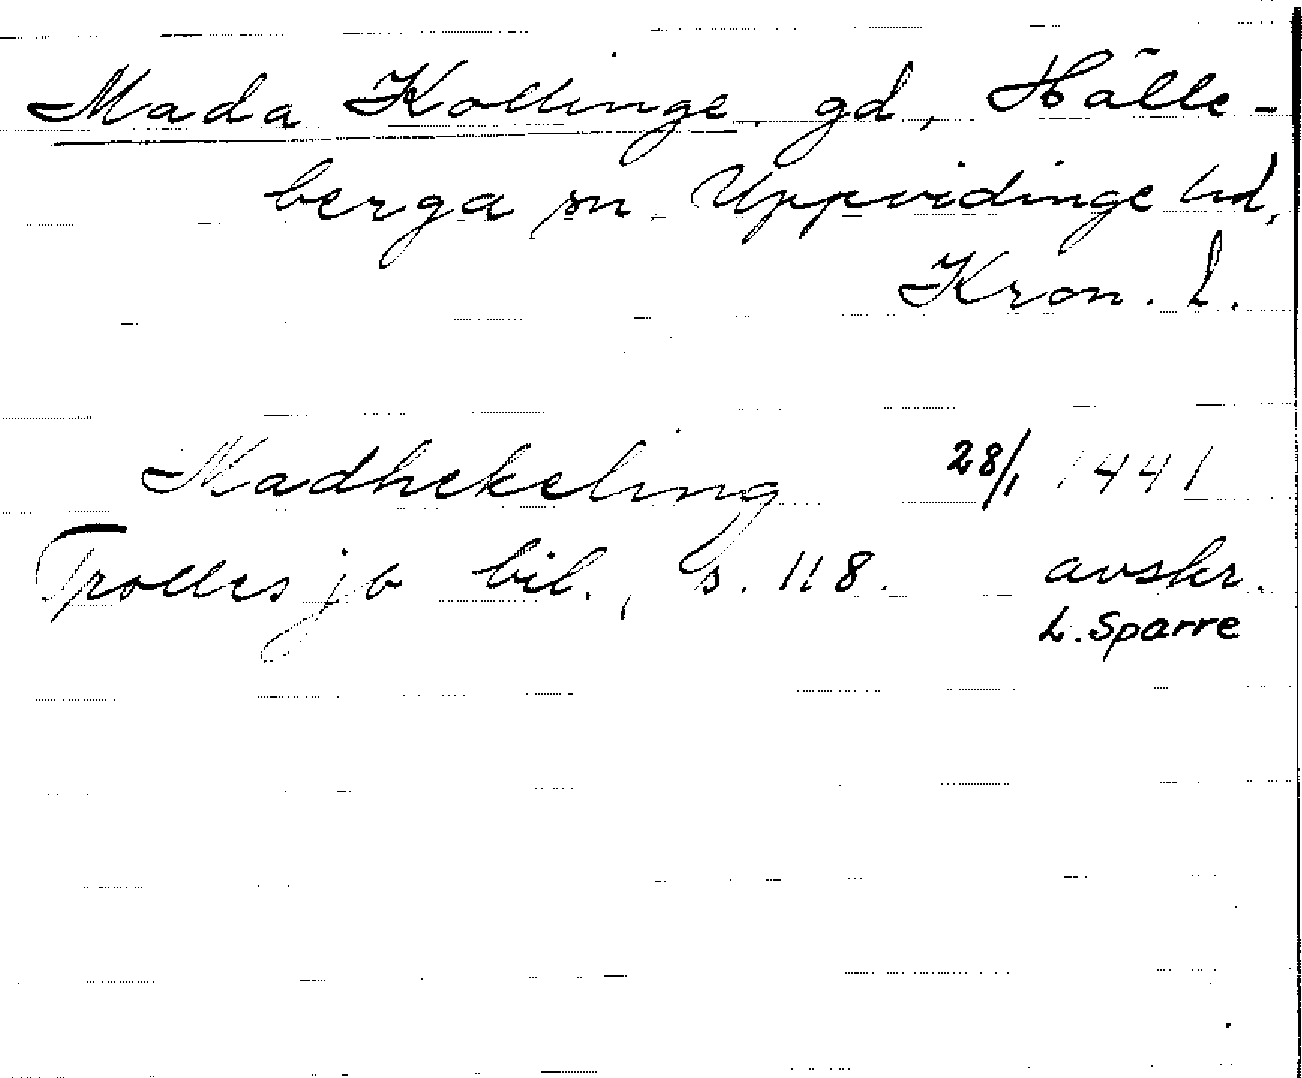 Mada Kollinge gd, Hälle-
berga sn. Uppvidinge hd,
Kron. L.
Madhekeling 28/1 1441
Trolles jb bil., s. 118. avskr.
L. Sparre